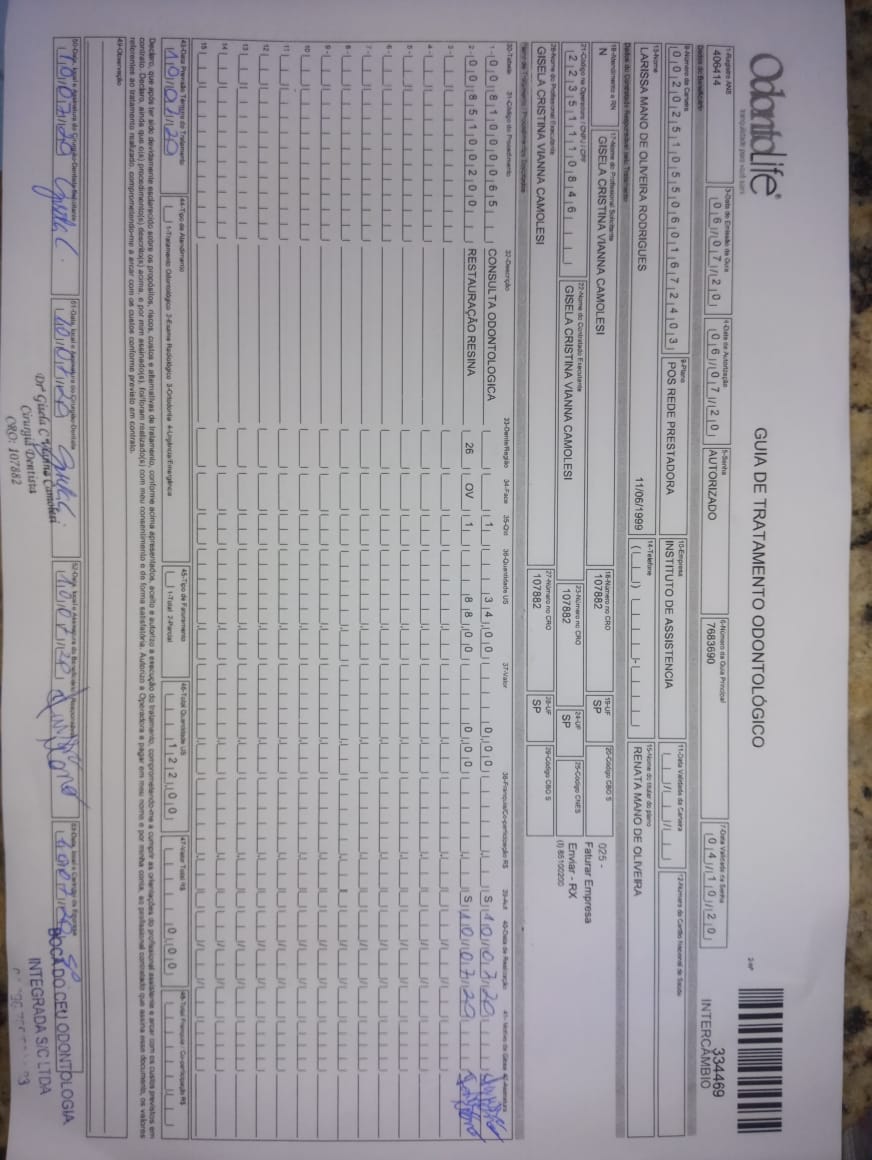 OdontoLife®
GUIA DE TRATAMENTO ODONTOLÓGICO
2-Nº
334469
INTERCÂMBIO
1-Registro ANS
406414
3-Data de Emissão da Guia
06/07/20
4-Data de Autorização
06/07/20
5-Senha
AUTORIZADO
6-Número da Guia Principal
7683690
7-Data Validade da Senha
04/10/20
Dados do Beneficiário
8-Número da Carteira
00202510550601672403
9-Plano
POS REDE PRESTADORA
10-Empresa
INSTITUTO DE ASSISTENCIA
11-Data Validade da Carteira
12-Número do Cartão Nacional de Saúde
13-Nome
LARISSA MANO DE OLIVEIRA RODRIGUES 11/06/1999
14-Telefone
15-Nome do titular do plano
RENATA MANO DE OLIVEIRA
Dados do Contratado Responsável pelo Tratamento
16-Atendimento a RN
N
17-Nome do Profissional Solicitante
GISELA CRISTINA VIANNA CAMOLESI
18-Número no CRO
107882
19-UF
SP
20-Código CBO S
025 -
Faturar Empresa
Enviar - RX
(I) 85100200
21-Código na Operadora / CNPJ / CPF
22351110846
22-Nome do Contratado Executante
GISELA CRISTINA VIANNA CAMOLESI
23-Número no CRO
107882
24-UF
SP
25-Código CNES
26-Nome do Profissional Executante
GISELA CRISTINA VIANNA CAMOLESI
27-Número no CRO
107882
28-UF
SP
29-Código CBO S
Plano de Tratamento / Procedimentos Solicitados
30-Tabela 31-Código do Procedimento 32-Descrição 33-Dente/Região 34-Face 35-Qtd 36-Quantidade US 37-Valor 38-Franquia/Co-participação R$ 39-Aut 40-Data de Realização 42-Assinatura
1- 00 81000065 CONSULTA ODONTOLOGICA 1 34,00 0,00 S 10/07/20
2- 00 85100200 RESTAURAÇÃO RESINA 26 OV 1 88,00 0,00 S 10/07/20
3-
4-
5-
6-
7-
8-
9-
10
11
12
13
14
15
43-Data Previsão Término do Tratamento
10/07/20
44-Tipo de Atendimento
1-Tratamento Odontológico 2-Exame Radiológico 3-Ortodontia 4-Urgência/Emergência
45-Tipo de Faturamento
1-Total 2-Parcial
46-Total Quantidade US
122,00
47-Valor Total R$
0,00
48-Total Franquia / Co-participação R$
Declaro, que após ter sido devidamente esclarecido sobre os propósitos, riscos, custos e alternativas de tratamento, conforme acima apresentados, aceito e autorizo a execução do tratamento, comprometendo-me a cumprir as orientações do profissional assistente e arcar com os custos previstos em
contrato. Declaro, ainda que o(s) procedimento(s) descrito(s) acima, e por mim assinado(s), foi/foram realizado(s) com meu consentimento e de forma satisfatória. Autorizo a Operadora a pagar em meu nome e por minha conta, ao profissional contratado que assina esse documento, os valores
referentes ao tratamento realizado, comprometendo-me a arcar com os custos conforme previsto em contrato.
49-Observação
50-Data, local e Assinatura do Cirurgião-Dentista Solicitante
10/07/20
51-Data, local e Assinatura do Cirurgião-Dentista
10/07/20
52-Data, local e Assinatura do Beneficiário / Responsável
10/07/20
53-Data, local e Carimbo da Empresa
10/07/20
Drª Gisela C. Vianna Camolesi
Cirurgiã Dentista
CRO: 107882
BOCA DO CEU ODONTOLOGIA
INTEGRADA S/C LTDA